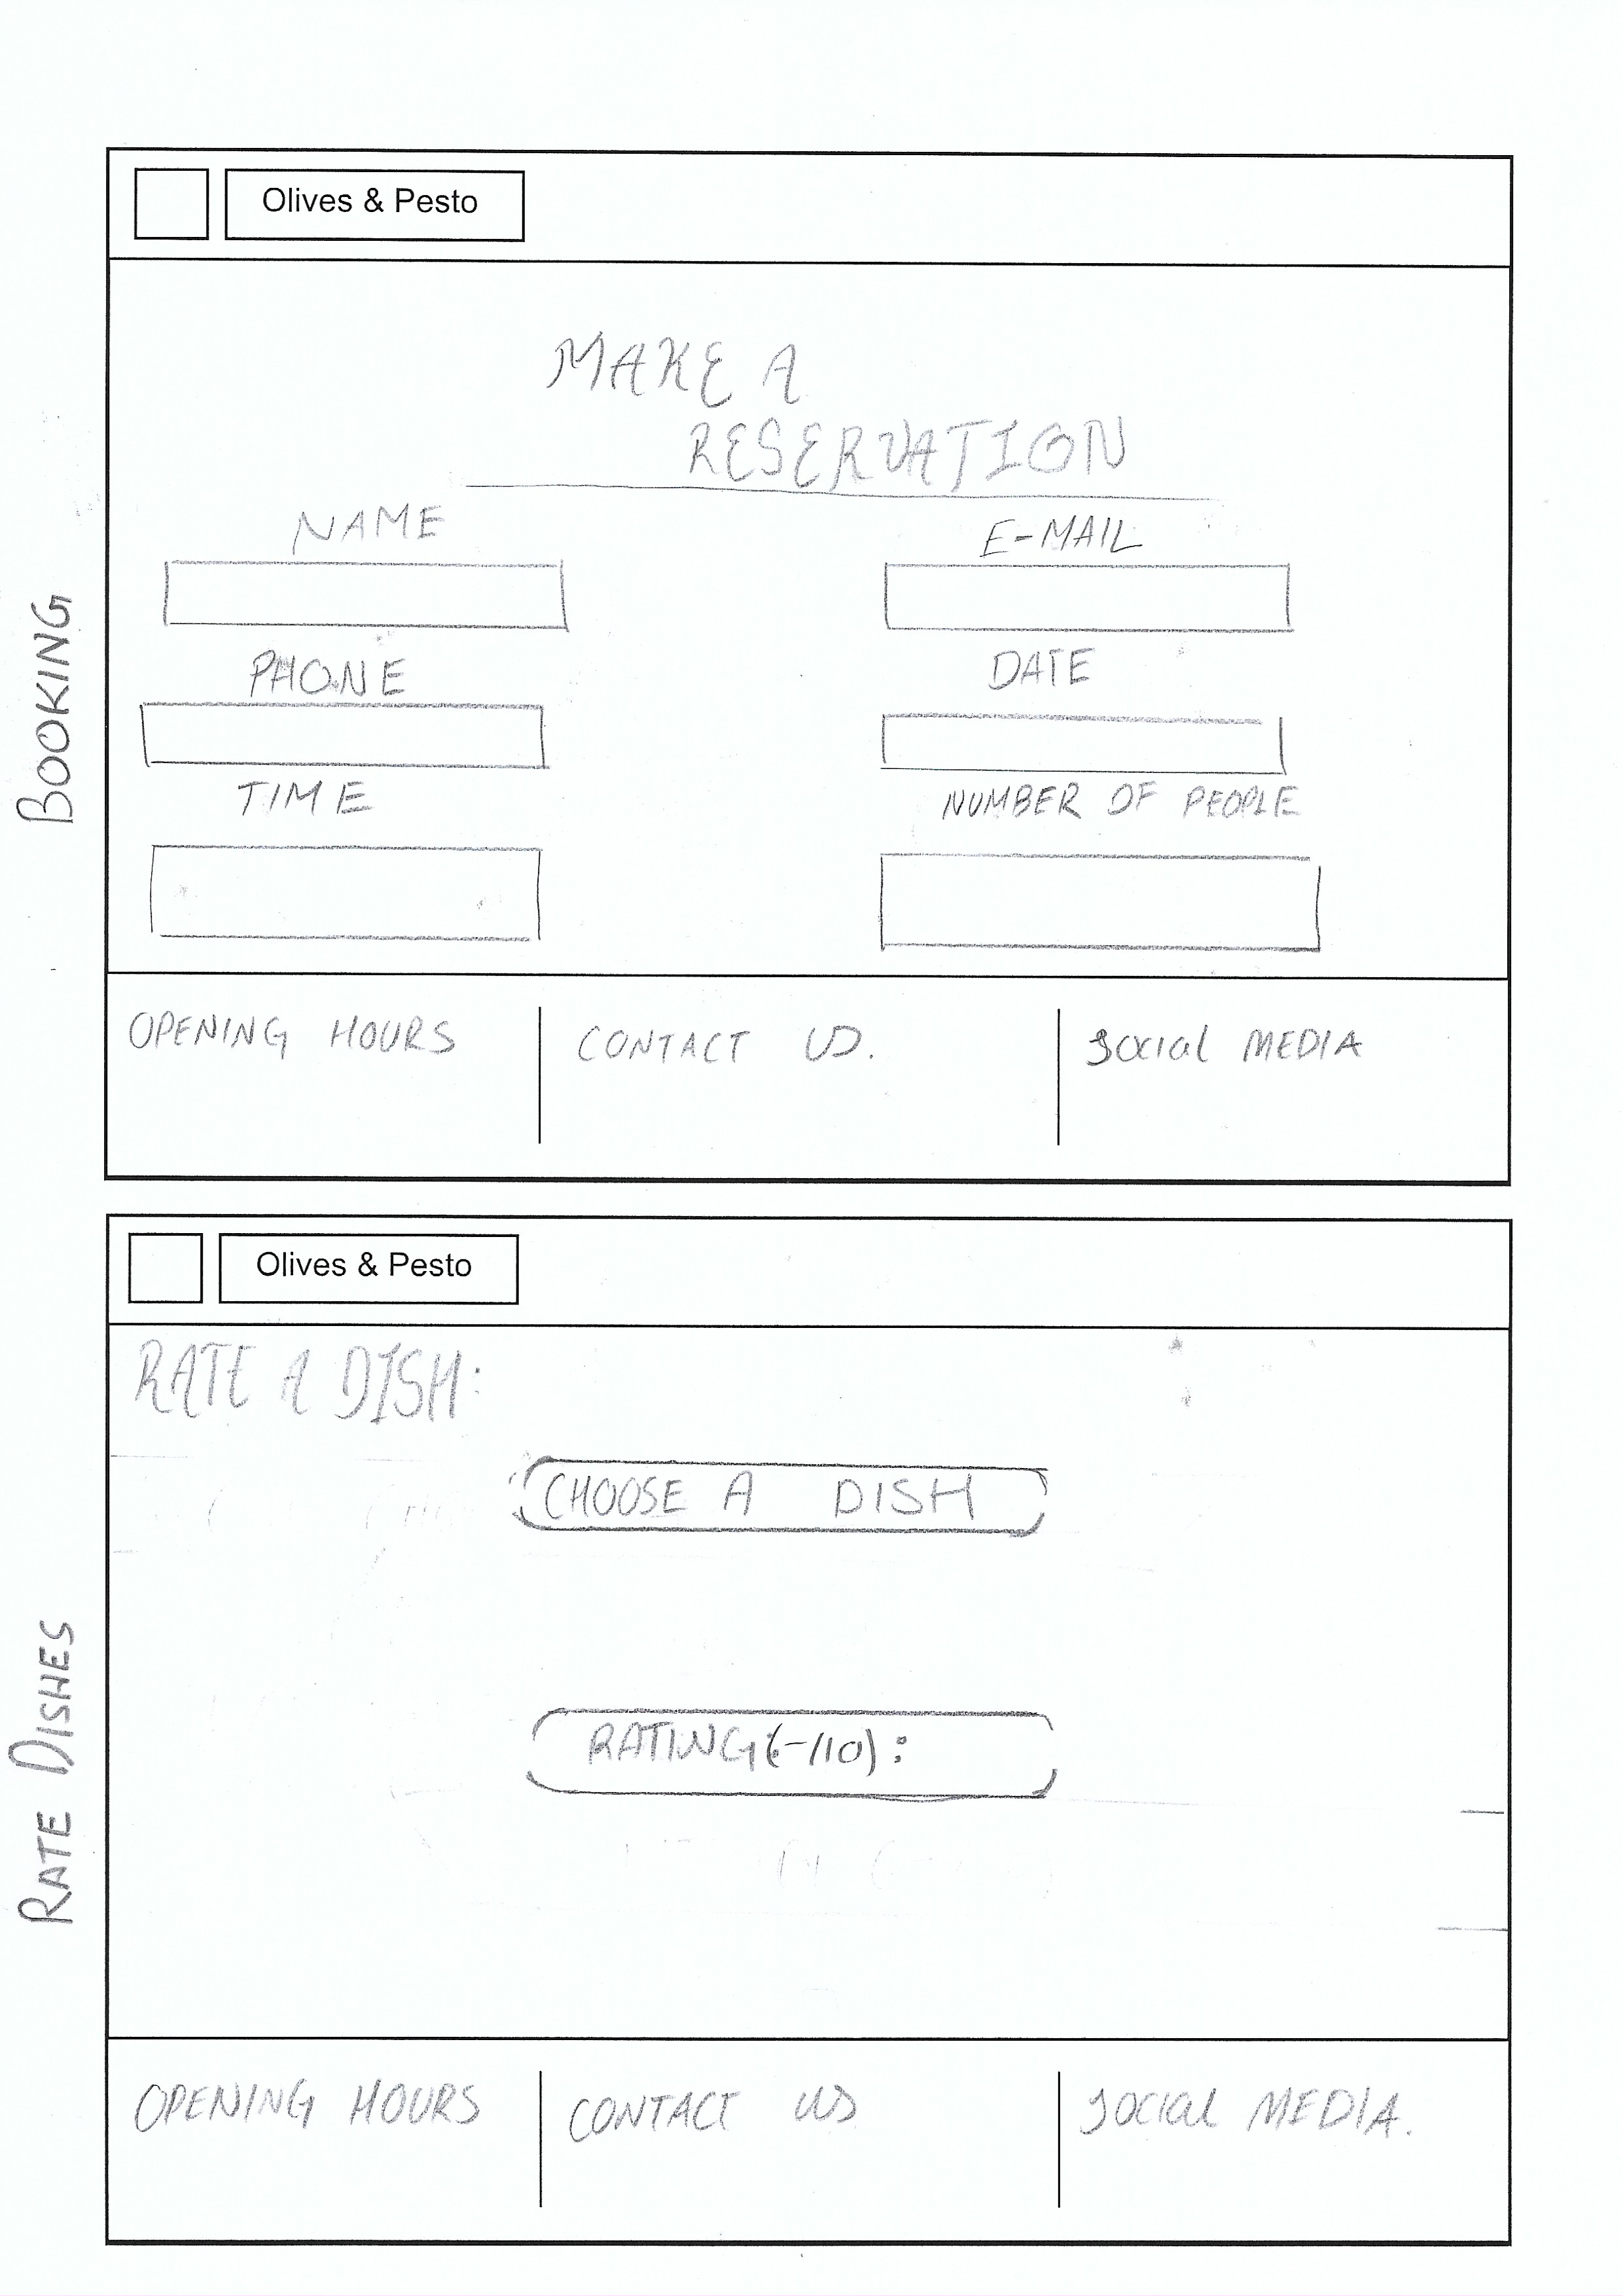 Olives & Pesto
MAKE A
RESERVATION
NAME
E-MAIL
PHONE
DATE
TIME
NUMBER OF PEOPLE
BOOKING
OPENING HOURS
CONTACT US.
Social MEDIA
Olives & Pesto
RATE A DISH:
CHOOSE A DISH
RATING (-/10):
RATE DISHES
OPENING HOURS
CONTACT US
Social MEDIA.